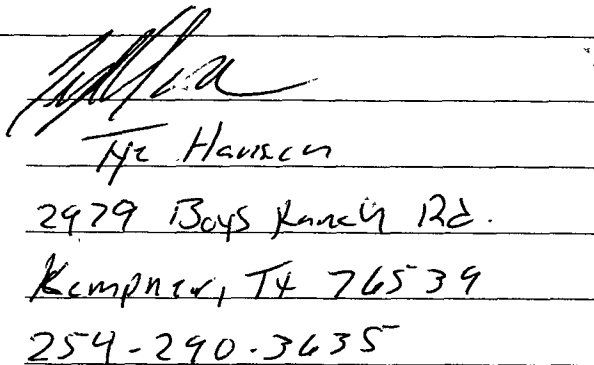 Tye Hansen
2979 Boys Ranch Rd.
Kempner, TX 76539
254-290-3635